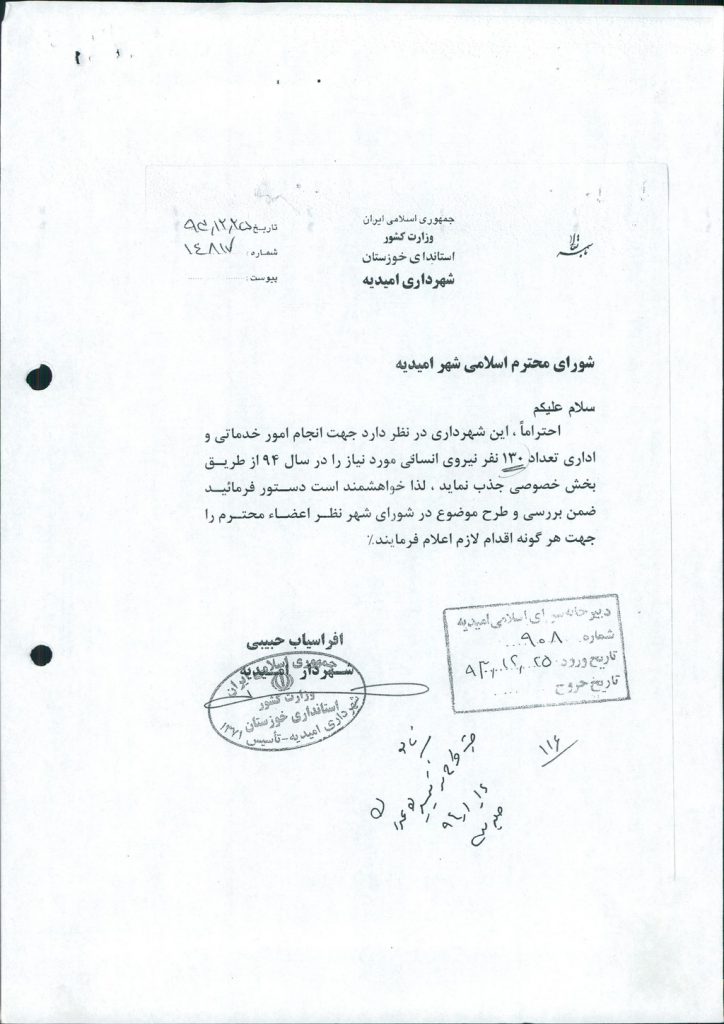 بسمه تعالی
جمهوری اسلامی ایران
وزارت کشور
استانداری خوزستان
شهرداری امیدیه
تاریخ ۹۳,۱۲,۲۵
شماره : ۱۴۸۱۷
پیوست :
شورای محترم اسلامی شهر امیدیه
سلام علیکم
احتراماً ، این شهرداری در نظر دارد جهت انجام امور خدماتی و
اداری تعداد ۱۳۰ نفر نیروی انسانی مورد نیاز را در سال ۹۴ از طریق
بخش خصوصی جذب نماید ، لذا خواهشمند است دستور فرمائید
ضمن بررسی و طرح موضوع در شورای شهر نظر اعضاء محترم را
جهت هر گونه اقدام لازم اعلام فرمایند٪
افراسیاب حبیبی
شهردار امیدیه
جمهوری اسلامی ایران
وزارت کشور
استانداری خوزستان
شهرداری امیدیه-تأسیس ۱۳۷۱
دبیرخانه شورای اسلامی امیدیه
شماره ۹۰۸
تاریخ ورود ۹۳,۱۲,۲۵
تاریخ خروج
۱۱۶